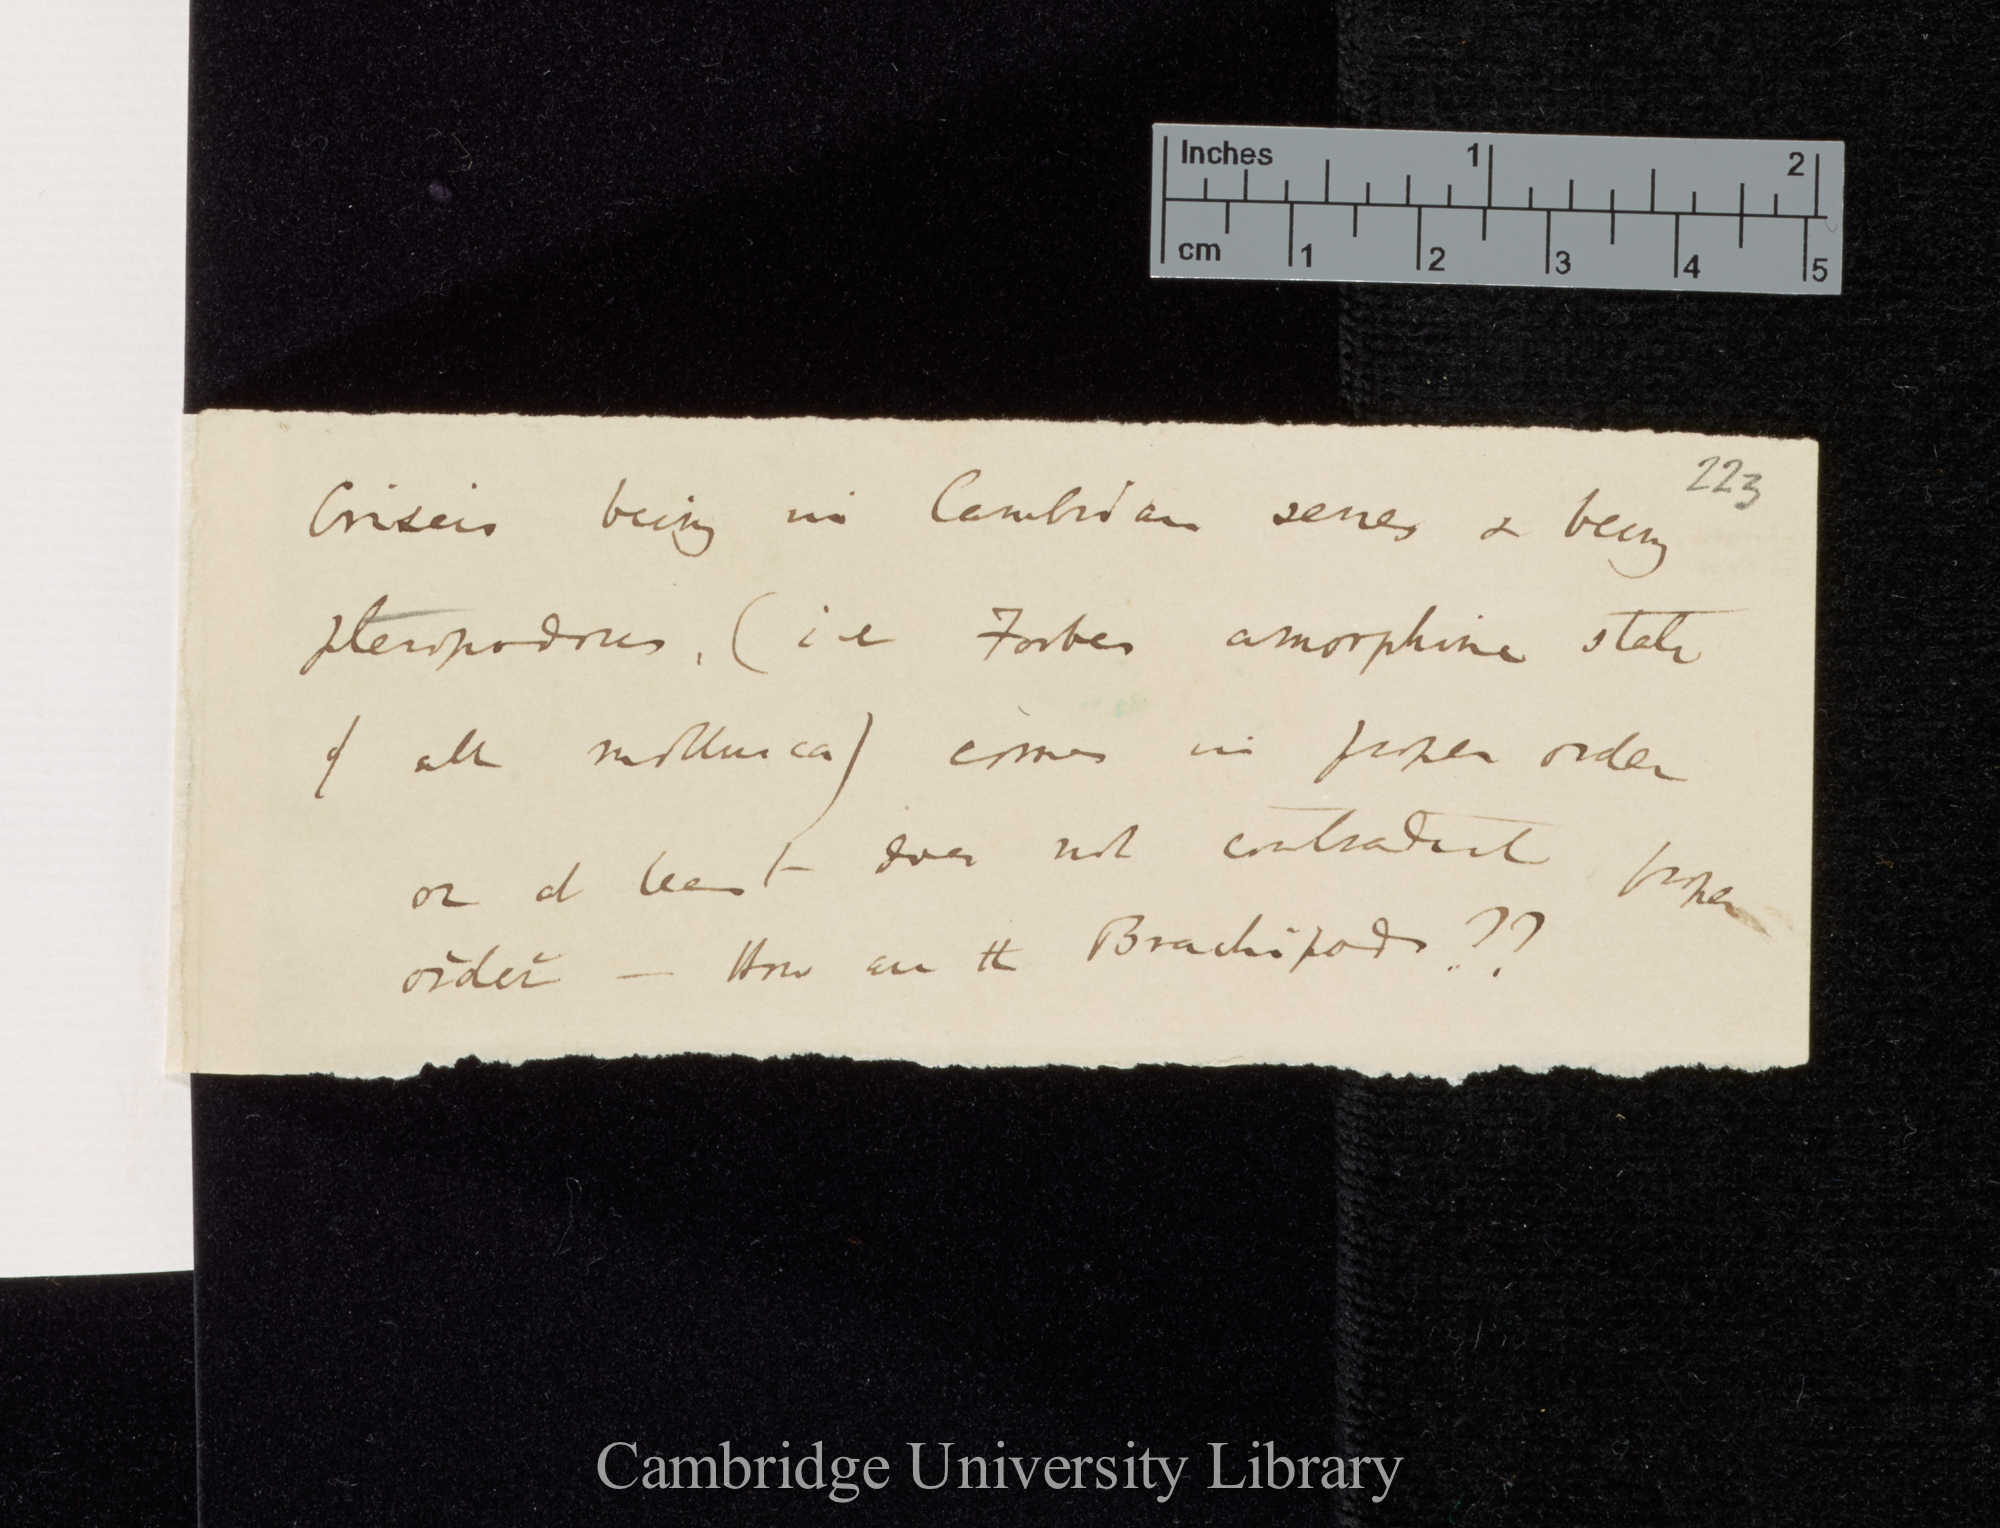 Inches 1 2
cm 1 2 3 4 5
223
Criseis being in Cambrian series & being
pteropodous, (i.e Forbes amorphine state
of all mollusca) comes in proper order
or at least does not contradict proper
order — How are the Brachipods??
Cambridge University Library